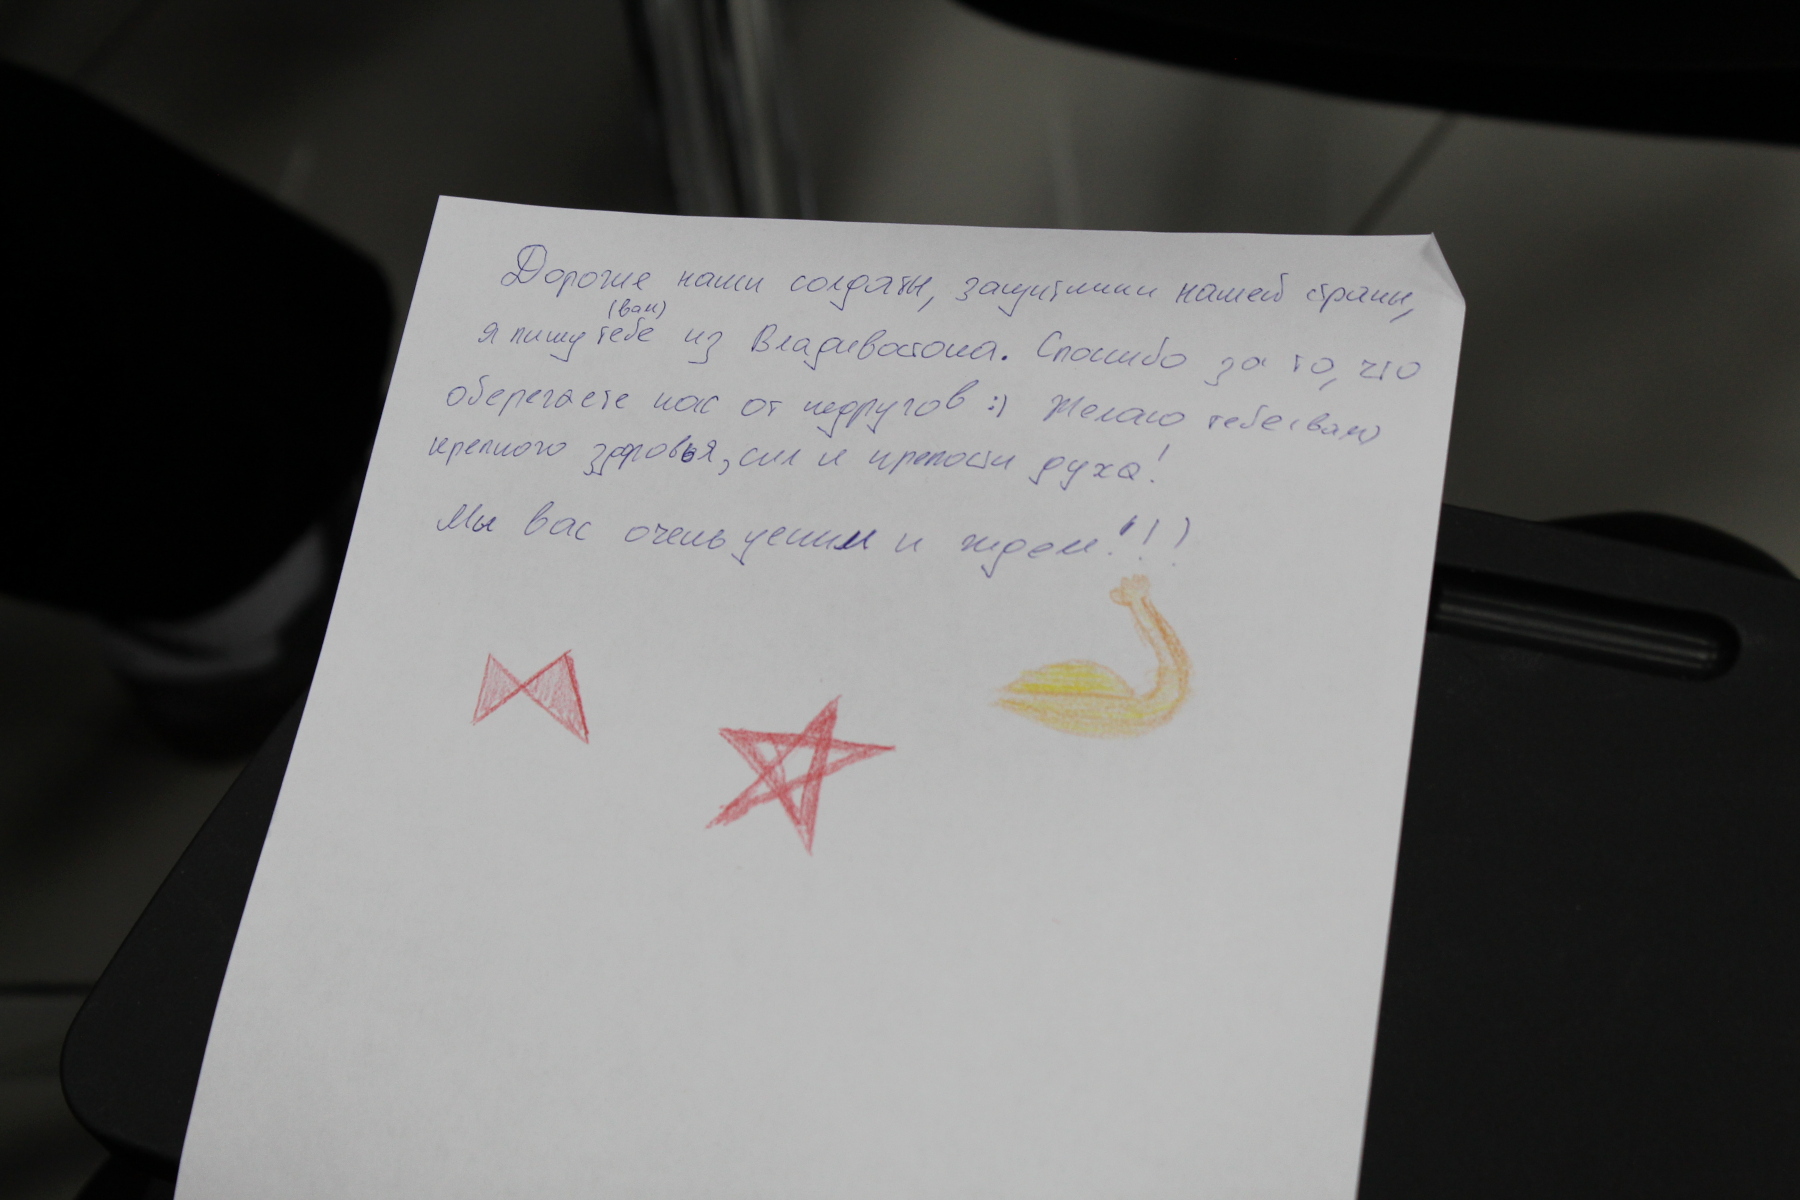 Дорогие наши солдаты, защитники нашей страны,
(вам)
я пишу тебе из Владивостока. Спасибо за то, что
оберегаете нас от недругов :) Желаю тебе (вам)
крепкого здоровья, сил и крепости духа!
Мы вас очень ценим и ждем!!!